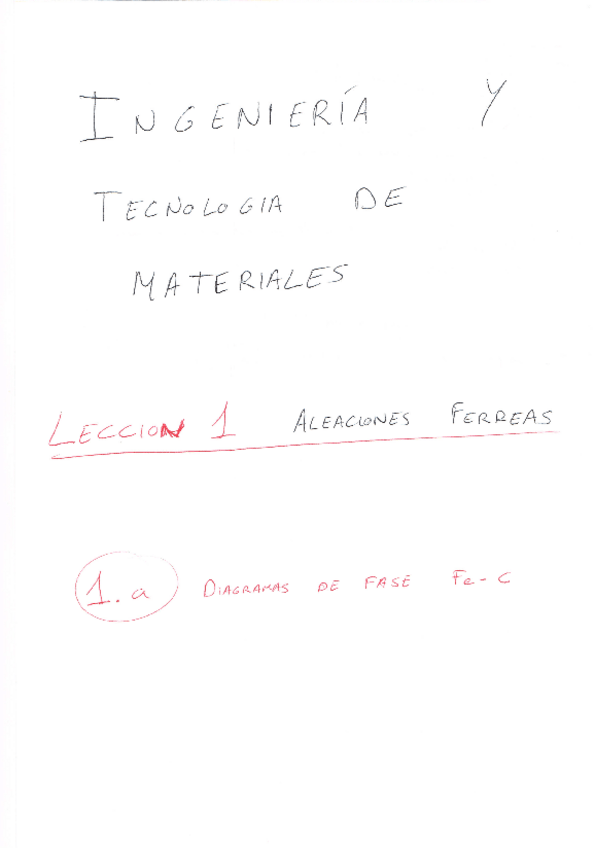 INGENIERÍA Y
TECNOLOGIA DE
MATERIALES
LECCION 1 ALEACIONES FERREAS
1.a DIAGRAMAS DE FASE Fe-C